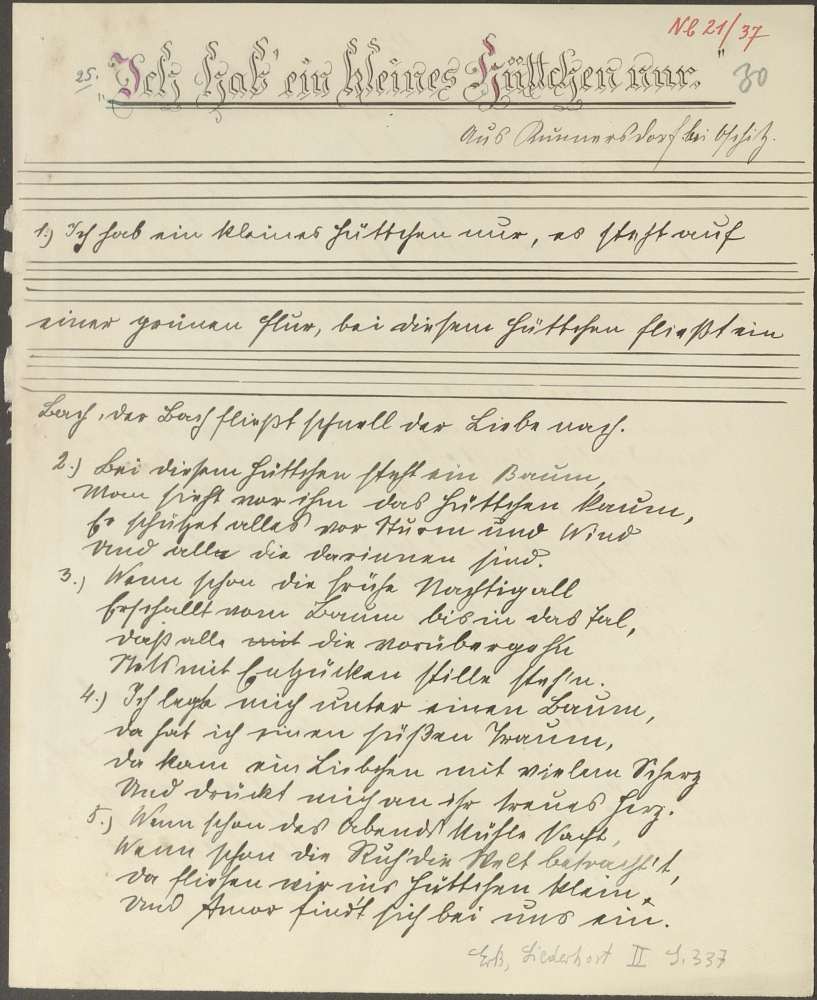 Nb 21/37
25. "Ich hab' ein kleines Hüttchen nur."
30
Aus Kunnersdorf bei
1.) Ich hab ein kleines Hüttchen nur, es steht auf
einer grünen Flur, bei diesem Hüttchen fließt ein
Bach, der Bach fließt schnell der Liebe nach.
2.) Bei diesem Hüttchen steht ein Baum,
Man sieht vor ihm das Hüttchen kaum,
Er schützet alles vor Sturm und Wind
Und alle die darinnen sind.
3.) Wenn schon die frühe Nachtigall
Erschallt vom Baum bis in das Tal,
Daß alle mit die vorübergehn
Stets mit Entzücken stille steh'n.
4.) Ich legte mich unter einen Baum,
Da hat ich einen süßen Traum,
Da kam ein Liebchen mit vielem Scherz
Und drückt mich an ihr treues Herz.
5.) Wenn schon des Abends kühle
Wenn schon die Ruh' die Welt betracht't,
Da fliehen wir ins Hüttchen klein,
Und Amor find't sich bei uns ein.
Erk, Liederhort II S. 337